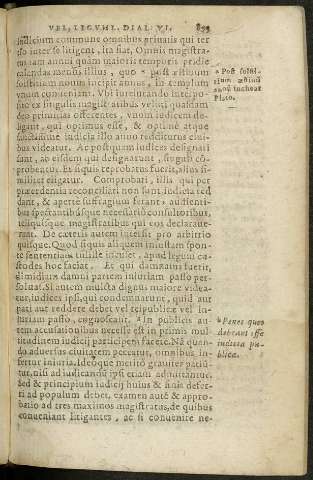 VEL, LEGVM. DIAL. VI. 899
iudicium commune omnibus priuatis qui ter
tiò inter se litigent, ita fiat, Omnis magistra-
tus
annui quàm maioris temporis pridie
calendas mensis illius, quo * post æstiuum
solstitium nouus incipit annus, in templum
vnum conueniant. Vbi iureiurando interpo-
sito ex singulis magistratibus velut quasdam
deo primitias offerentes, vnum iudicem de-
ligant, qui optimus esse, & optimè atque
iudicia illo anno redditurus ciui-
bus videatur. Ac postquam iudices designati
sunt, ab eisdem qui delegarunt, singuli cō-
probentur. Et si quis reprobatus fuerit, alius si-
militer eligatur. Comprobati, illis qui per
præcedentia reconciliari non sunt, iudicia red
dant, & apertè suffragium ferant, audienti-
bus spectantibúsque necessariò consultoribus,
cæterisque magistratibus qui eos declaraue-
runt. De cæteris autem intersit pro arbitrio
quisque. Quod siquis aliquem iniustam spon-
te sententiam tulisse inculet, apud legum cu-
stodes hoc faciat. Et qui damnatus fuerit,
dimidium damni partem iniuriam passo per-
soluat. Si autem multa dignus maiore videa-
tur, iudices ipsi, qui condemnarunt, quid aut
pati aut reddere debet vel reipublicæ vel in-
iuriam passo, cognoscant. * In publicis au-
tem accusationibus necesse est in primis mul-
titudinem iudicij participem facere. Nā quan
do aduersus ciuitatem peccatur, omnibus in-
fertur iniuria. Ideóque meritò grauiter patiū-
tur, nisi ad iudicandū ipsi etiam admittantur.
Sed & principium iudicij huius & finis defer-
ri ad populum debet, examen autē & appro-
batio ad tres maximos magistratus, de quibus
conueniant litigantes, ac si conuenire ne-
* Post solsti-
tium æstiuū
annū inchoat
Plato.
* Penes quos
debeant esse
iudicia pu-
blica.